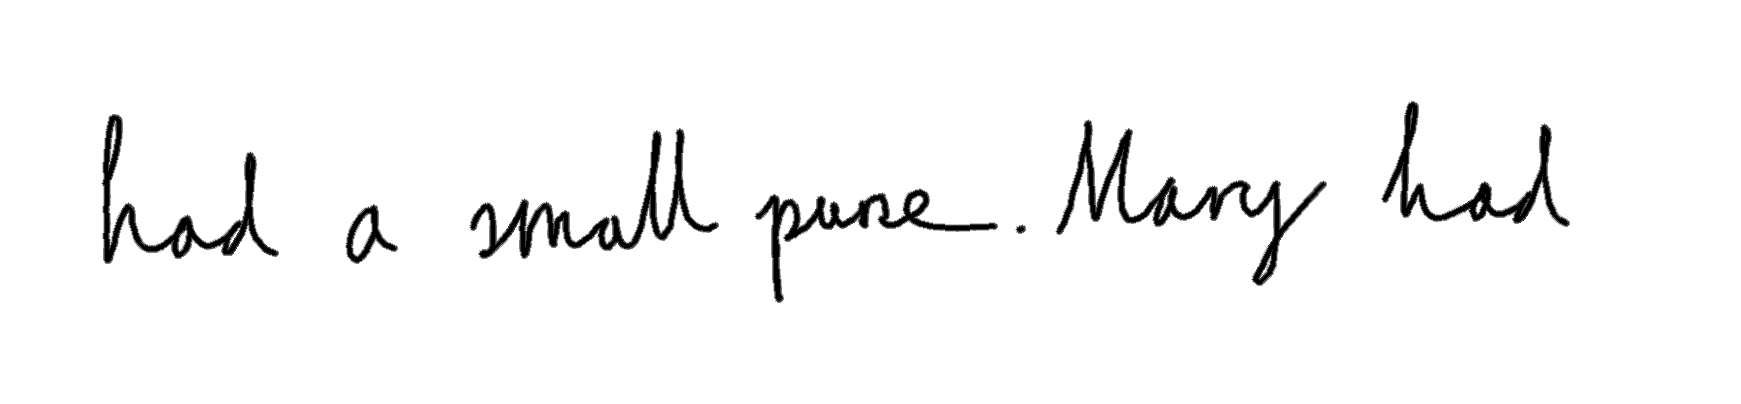 had a small purse. Mary had